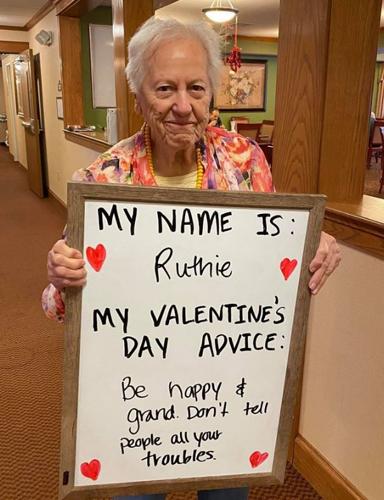 MY NAME IS:
Ruthie
MY VALENTINE'S
DAY ADVICE:
Be happy &
grand. Don't tell
people all your
troubles.